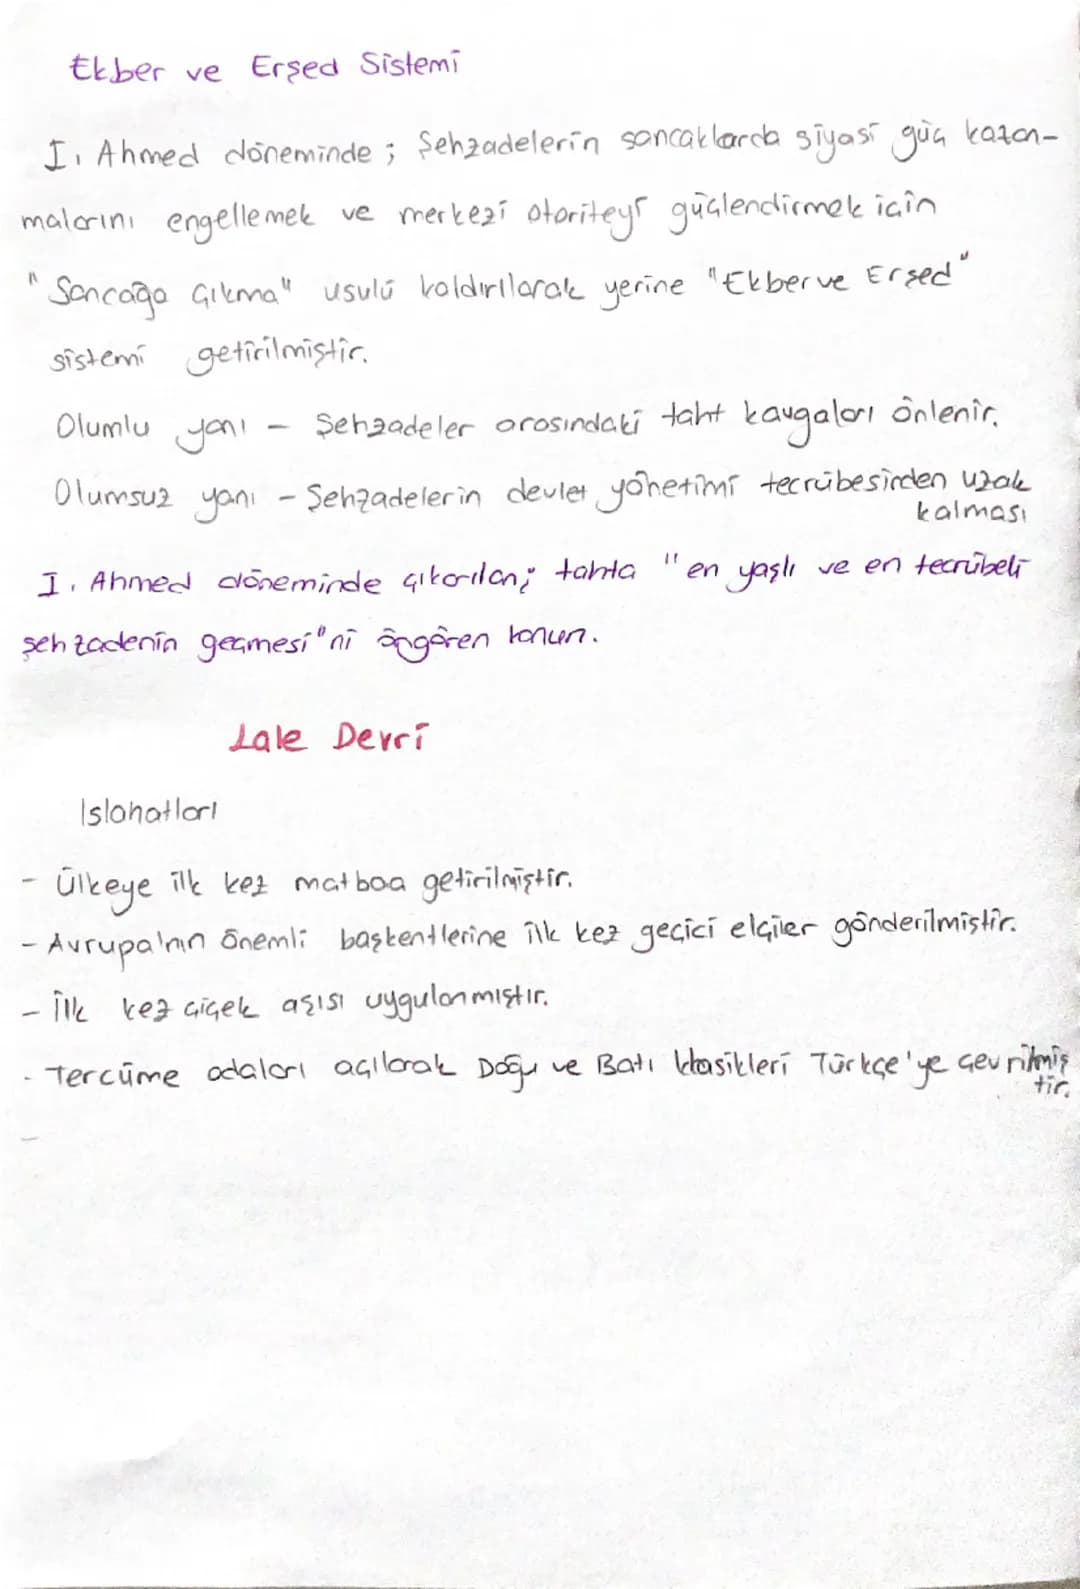 Ekber ve Erşed Sistemi
I. Ahmed döneminde ; Şehzadelerin sancaklarda siyasi güç kazan-
malarını engellemek ve merkezi otoriteyi güçlendirmek için
"Sancağa Çıkma" usulü kaldırılarak yerine "Ekber ve Erşed"
sistemi getirilmiştir.
Olumlu yanı - Şehzadeler arasındaki taht kavgaları önlenir.
Olumsuz yanı - Şehzadelerin devlet yönetimi tecrübesinden uzak
kalması
I. Ahmed döneminde çıkarılan; tahta "en yaşlı ve en tecrübeli
şehzadenin geçmesi"ni öngören kanun.
Lale Devri
Islahatları
- Ülkeye ilk kez matbaa getirilmiştir.
- Avrupa'nın önemli başkentlerine ilk kez geçici elçiler gönderilmiştir.
- İlk kez çiçek aşısı uygulanmıştır.
- Tercüme odaları açılarak Doğu ve Batı klasikleri Türkçe'ye çevrilmiş
tir.
-